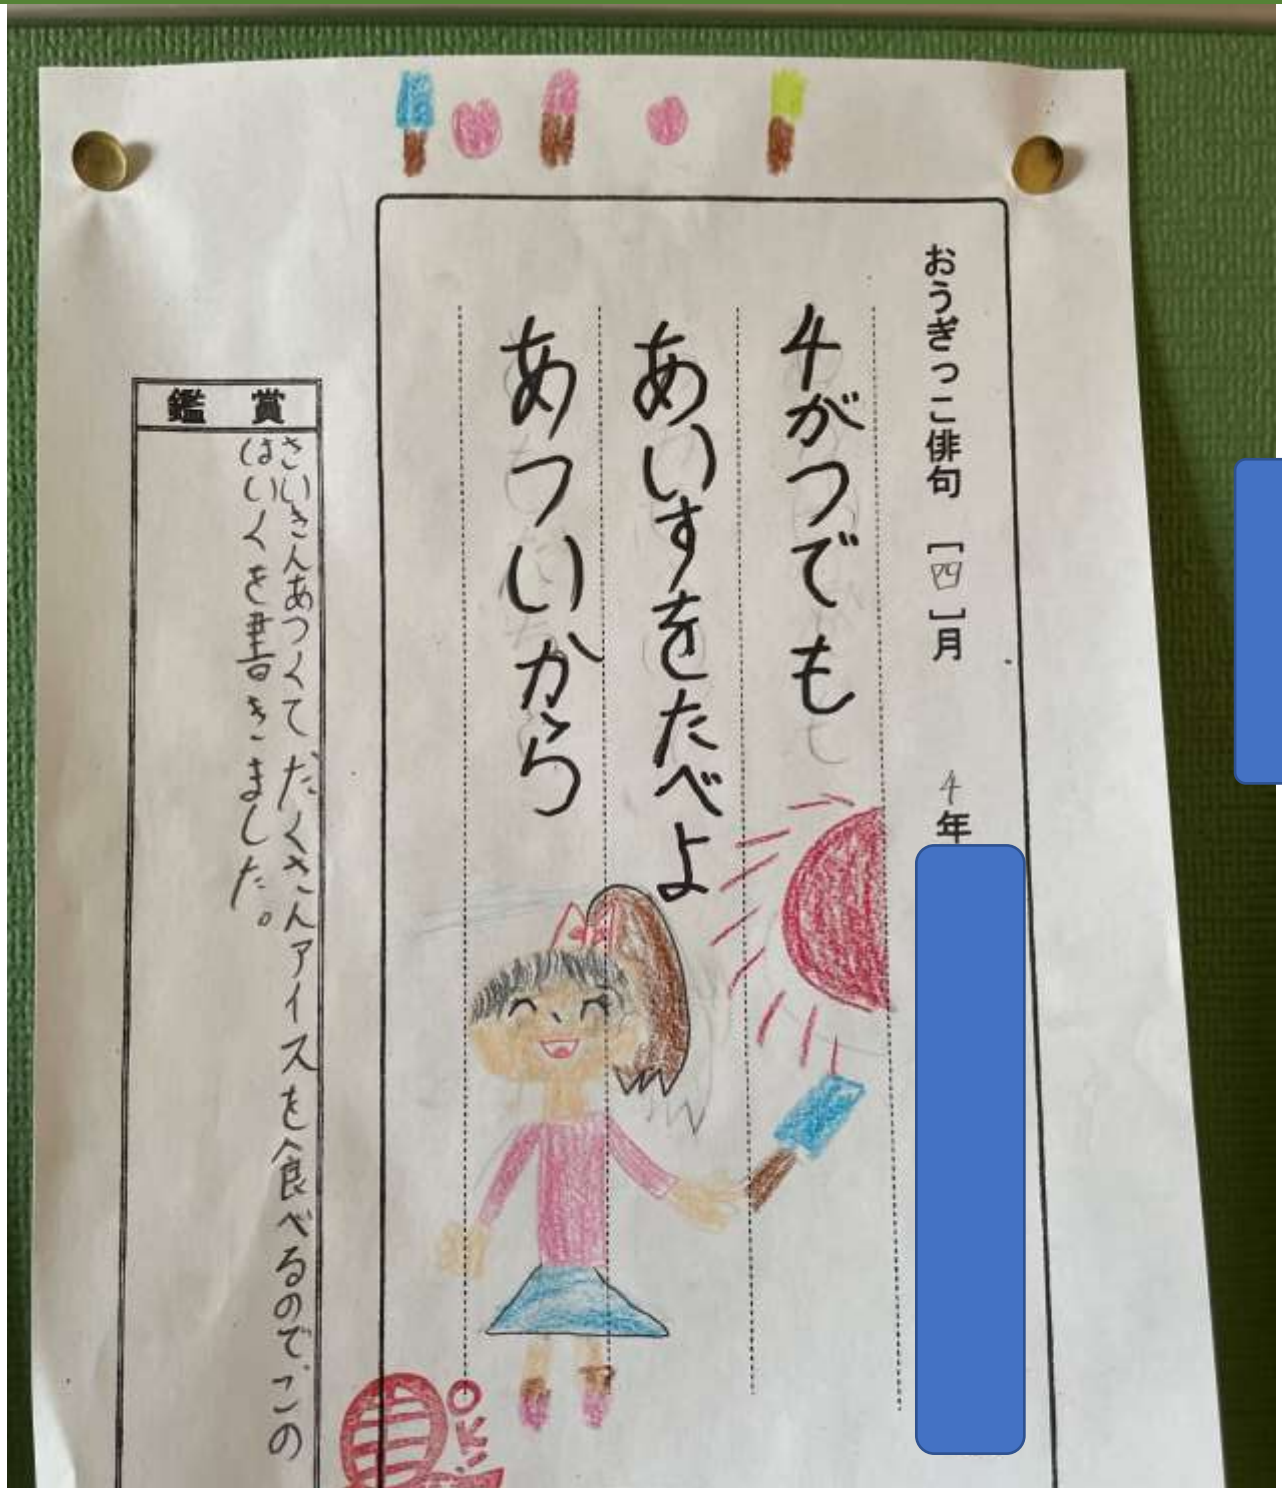 おうぎっこ俳句 [四]月 4年
4がつでも
あいすをたべよ
あついから
鑑賞
さいきんあつくてたくさんアイスを食べるので、この
はいくを書きました。